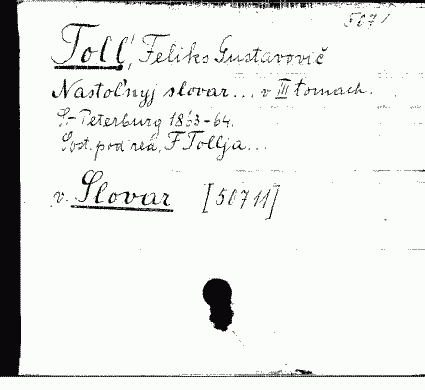 5071
Toll', Feliks Gustavovič
Nastol'nyj slovar... v III tomach.
S.-Peterburg 1863-64.
Sost. pod red. F. Tollja...
v. Slovar [50711]